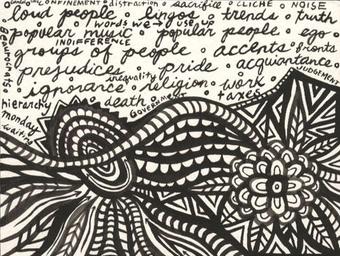 CONFINEMENT distraction sacrifice CLICHE NOISE
loud people lingos trends truth
words we use up
popular music popular people ego
INDIFFERENCE
groups of people accents fronts
prejudices pride acquaintance
inequality JUDGEMENT
ignorance religion work
hierarchy death Government taxes
monday
waiting
Beaurocrats